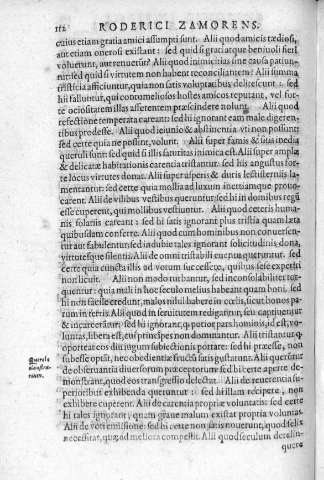 112 RODERICI ZAMORENS.
cuius etiam gratia amici assumpti sunt. Alii quod amicis tædiosi,
aut etiam onerosi existant: sed quid si gratia eque beniuoli fieri
voluerunt, aut Alii quod inimicitias sine causa patiun-
tur: sed quid si virtutem non habent reconciliantem? Alii summa
tristicia afficiuntur, quia non satis voluptatibus : sed hi
hii falluntur, qui contumeliosos hostes amicos reputant, vel for-
te ociositatem illas asserentem præscindere nolunt. Alii quod
refectione temperata careant: sed hi ignorant eam male digeren-
tibus prodesse. Alii quod ieiunio & abstinentia vti non possunt:
sed certe quia ne possint, volunt. Alii super famis & sitis inedia
queruli sunt: sed quid si illis saturitas inimica est. Alii super amplæ
& delicatæ habitationis carentia tristantur: sed his angustus for-
te locus virtutes donat. Alii super asperis & duris lectisterniis la-
mentantur: sed certe quia mollia ad luxum inertiamque prouo-
carent. Alii de vilibus vestibus queruntur: sed hi in domibus regũ
esse cuperent, qui mollibus vestiuntur. Alii quod ceteris huma-
nis solatiis careant: sed hi satis ignorant plus tristitia quam læta
quibusdam conferre. Alii quod cum hominibus non conuersen-
tur aut fabulentur: sed indubie tales ignorant solitudinis dona,
virtutesque silentii. Alii de omni tristabili euentu queruntur: sed
certe quia cuncta illis ad votum successisse, quibus sese expetiri
non licuit. Alii non modo turbantur, sed inconsolabiliter tor-
quentur: quia multi in hoc seculo melius habeant quam boni. sed
hi non facile credunt, malos nihil habere in cœlis, sicut bonos pa-
rum in terris. Alii quod in seruitutem redigantur, seu captiuentur
& incarcerantur. sed hi ignorant, q potior pars hominis, id est, vo-
luntas, libera est, cui principes non dominantur. Alii tristantur q
oporteat eos diu iugum subiectionis portare: sed hi præesse, non
subesse optãt, nec obedientiæ fructũ satis gustarunt. Alii querunt
de obseruantia diuersorum præceptorum: sed hi certe aperte de-
monstrant, quod eos transgressio delectat. Alii de reuerentia su-
perioribus exhibenda queruntur: sed hi illam recipere, non
exhibere cuperent. Alii de carentia propriæ voluntatis: sed certe
hi tales ignorant, quam grande malum existat propria voluntas.
Alii de voti emissione: sed hi certe non satis nouerunt, quod felix
necessitas, quæ ad meliora compellit. Alii quod seculum derelin-
quere
Querela